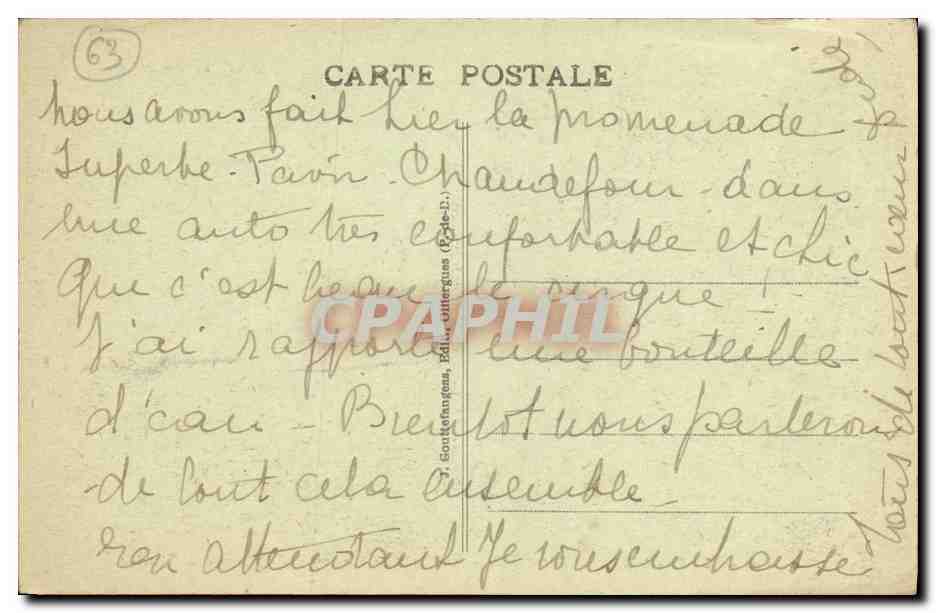 63
CARTE POSTALE
nous avons fait hier la promenade
superbe - Pavin - Chaudefour - dans
une auto très confortable et chic
Que c'est beau le cirque !
J'ai rapporté une bouteille
d'eau - Bientôt nous parlerons
de tout cela ensemble -
en attendant je vous embrasse
tous de tout cœur
J. Gouttefangeas, Edit., Olliergues (P.-de-D.)
CPAPHIL